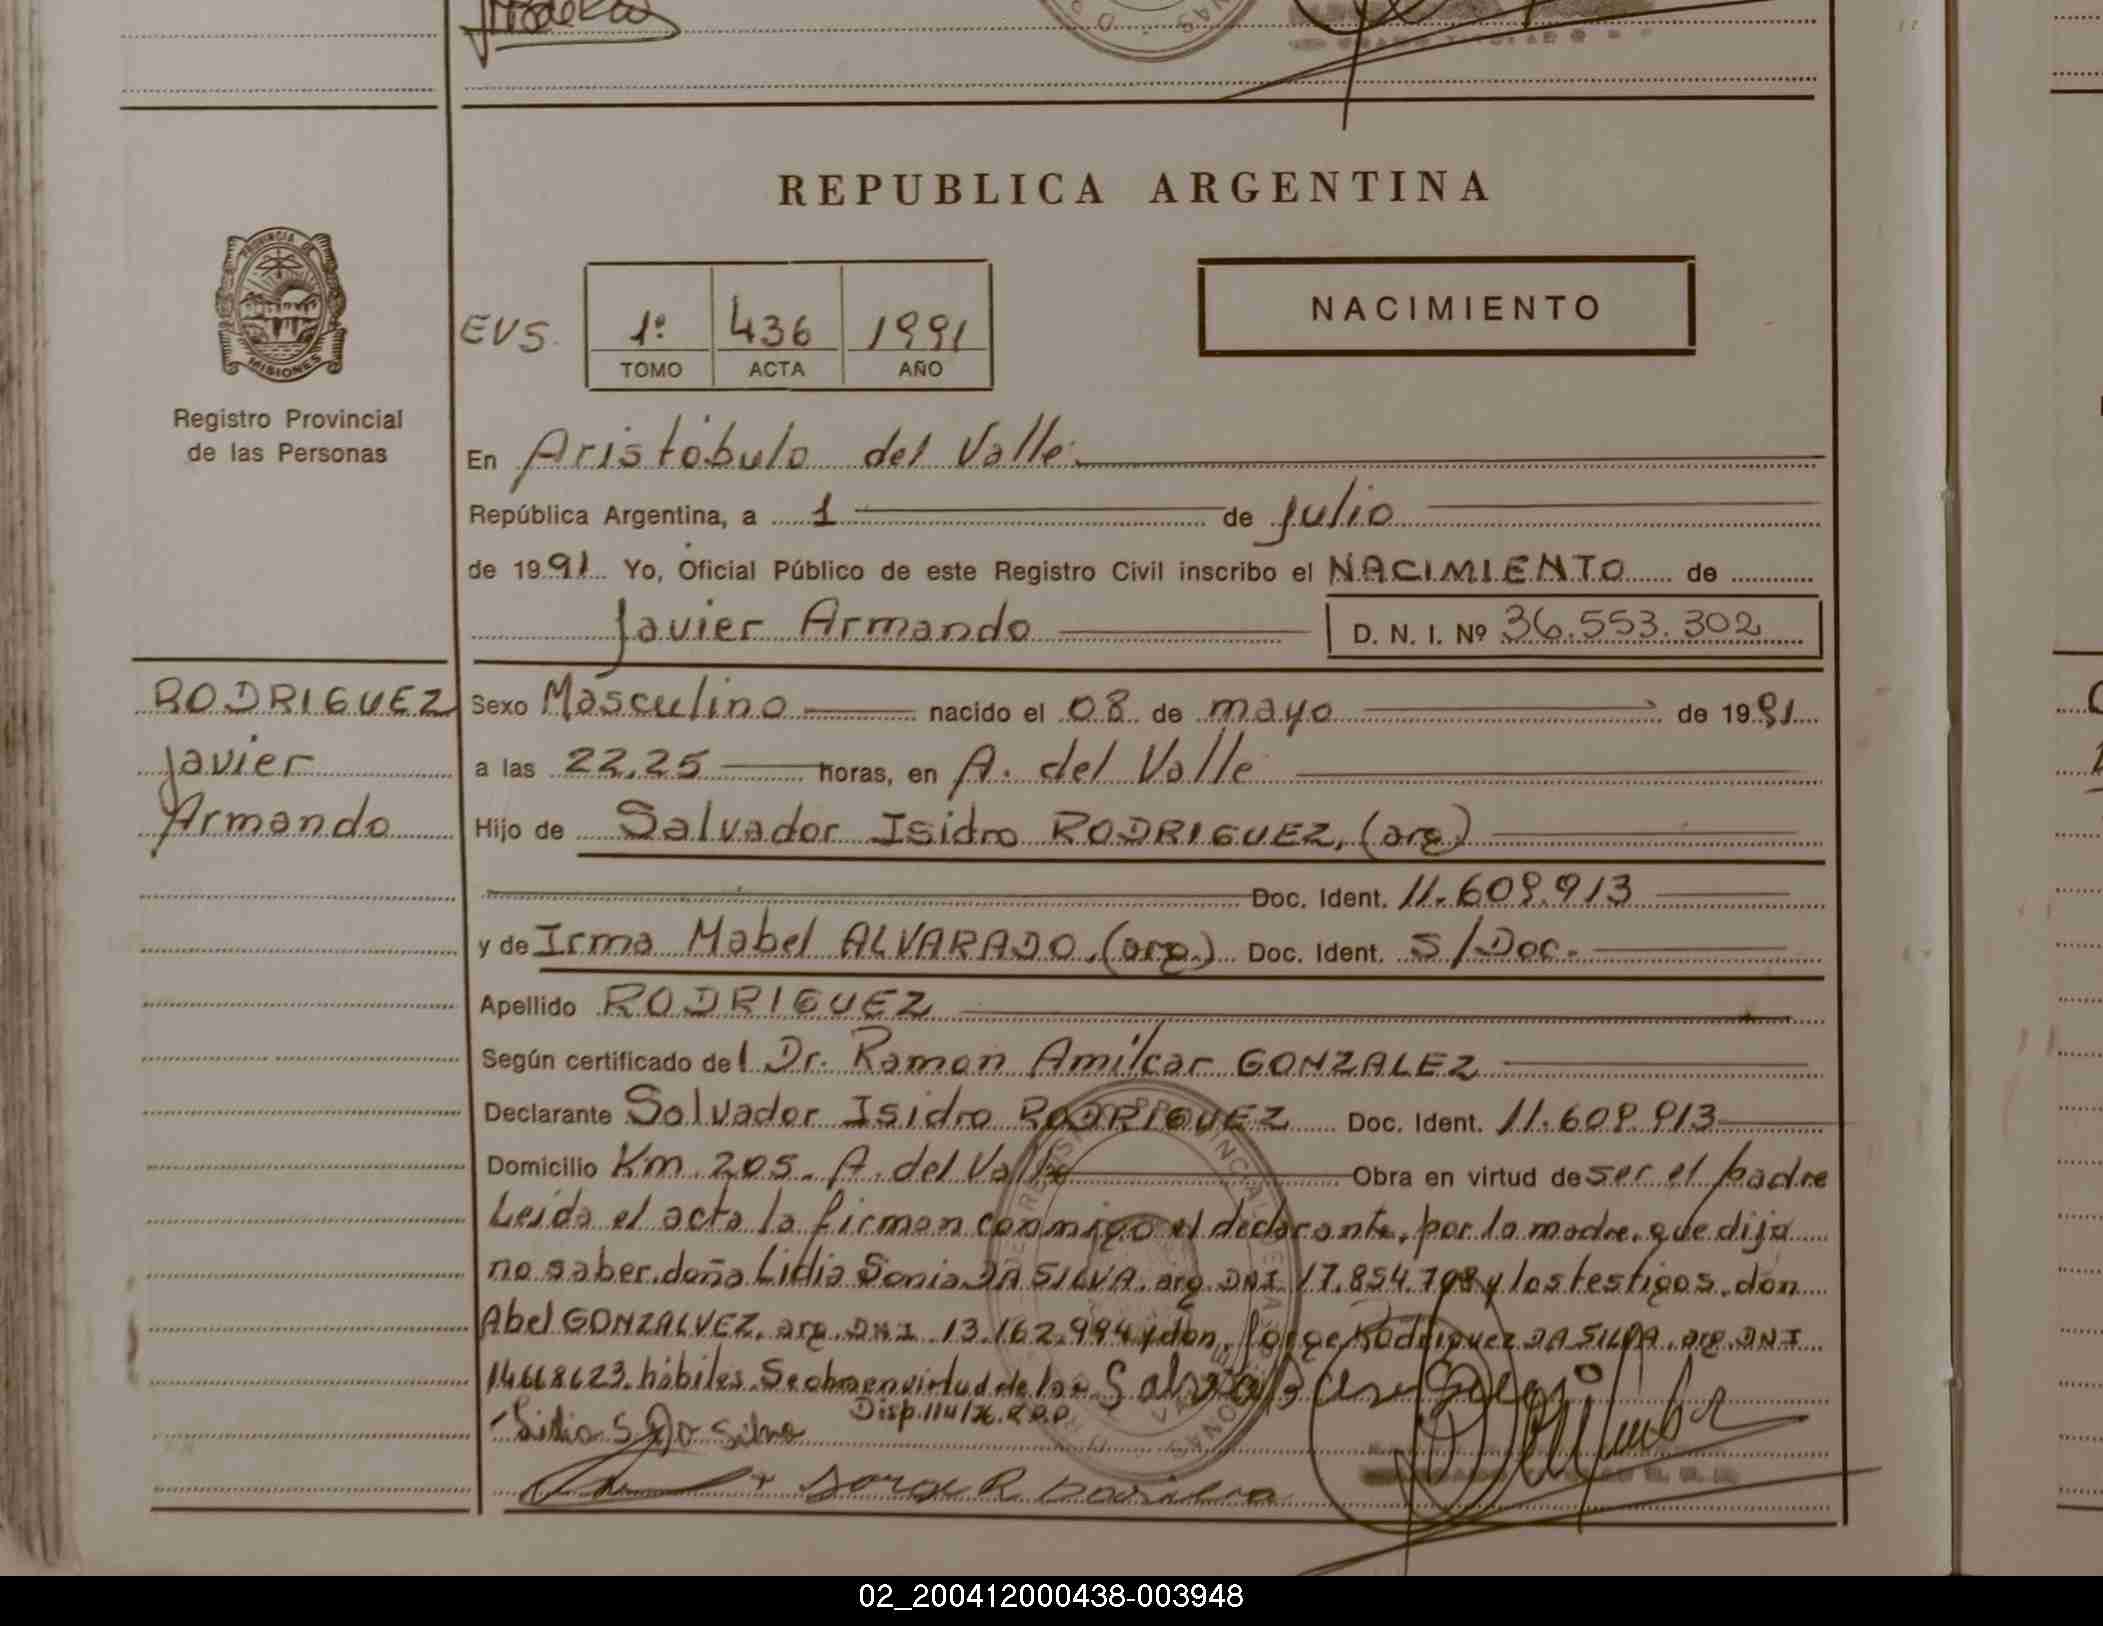 REPUBLICA ARGENTINA
PROVINCIA DE
MISIONES
Registro Provincial
de las Personas
EVS.
1º 436 1991
TOMO ACTA AÑO
NACIMIENTO
En Aristóbulo del Valle
República Argentina, a 1 de Julio
de 1991 Yo, Oficial Público de este Registro Civil inscribo el NACIMIENTO de
Javier Armando D. N. I. Nº 36.553.302
RODRIGUEZ
Javier
Armando
Sexo Masculino nacido el 08 de mayo de 1991
a las 22,25 horas, en A. del Valle
Hijo de Salvador Isidro RODRIGUEZ, (arg)
Doc. Ident. 11.609.913
y de Irma Mabel ALVARADO, (arg.) Doc. Ident. S/Doc.
Apellido RODRIGUEZ
Según certificado del Dr. Ramon Amilcar GONZALEZ
Declarante Salvador Isidro RODRIGUEZ Doc. Ident. 11.609.913
Domicilio Km. 205. A. del Valle Obra en virtud de ser el padre
Leida el acta la firman conmigo el declarante, por la madre, que dijo
no saber, doña Lidia Sonia DA SILVA, arg. DNI 17.854.798 y los testigos, don
Abel GONZALVEZ, arg. DNI 13.162.994 y don Jorge Rodriguez DA SILVA, arg. DNI
14668623, hábiles. Se obra en virtud de la
Disp. 114/76. R.P.P.
Lidia S Da Silva
Jorge R Dasilva
02_200412000438-003948